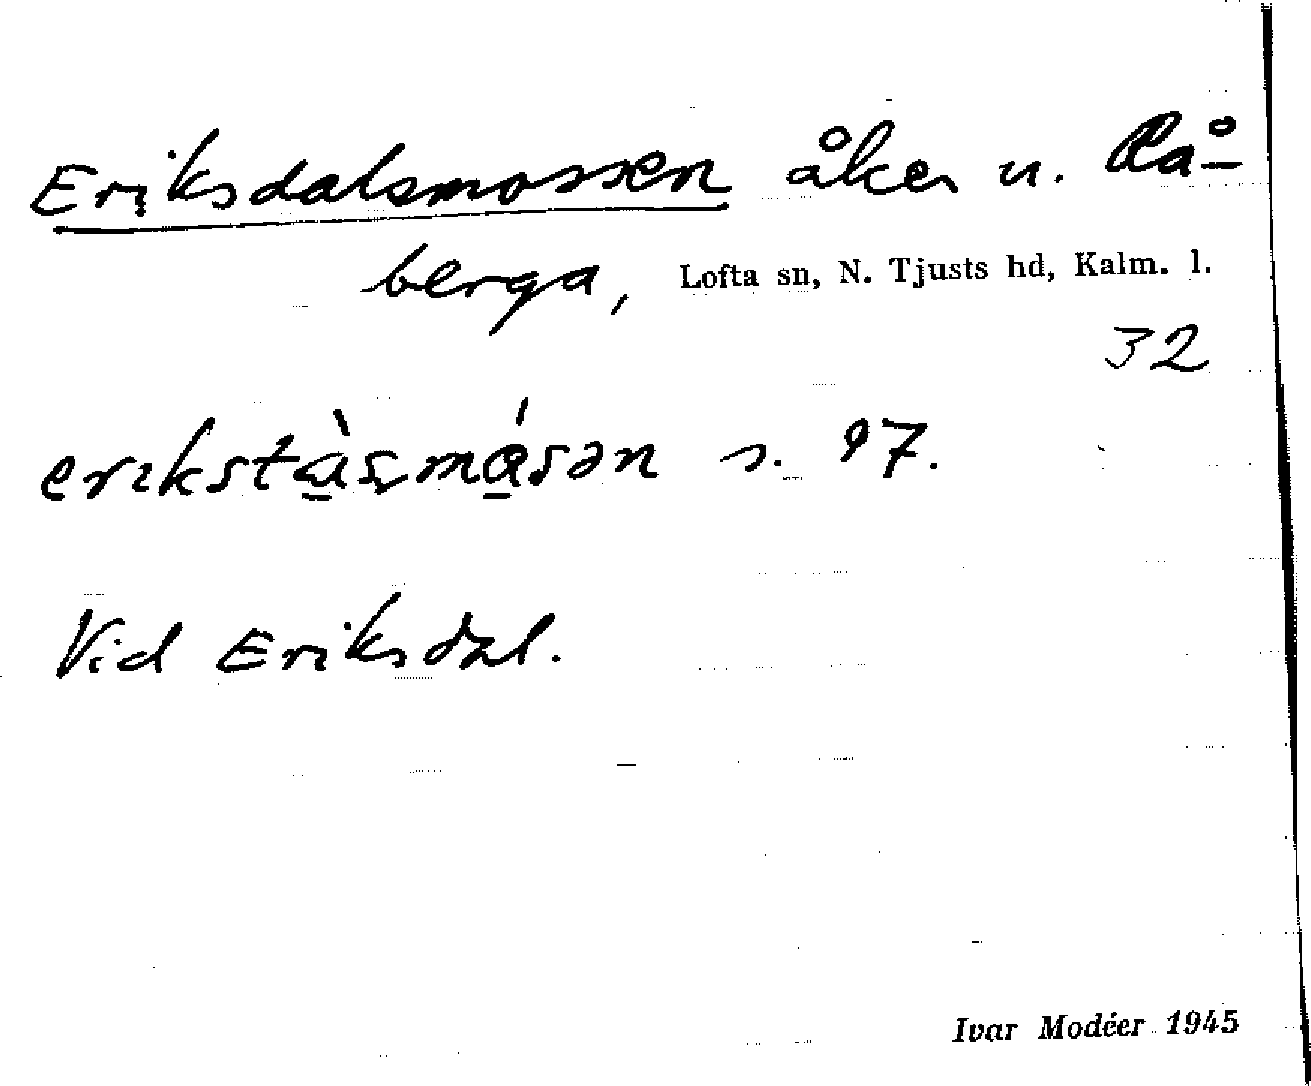 Eriksdalsmossen åker u. Rå-
berga, Lofta sn, N. Tjusts hd, Kalm. l.
32
erıkstàsmásən s. 97.
Vid Eriksdal.
Ivar Modéer 1945